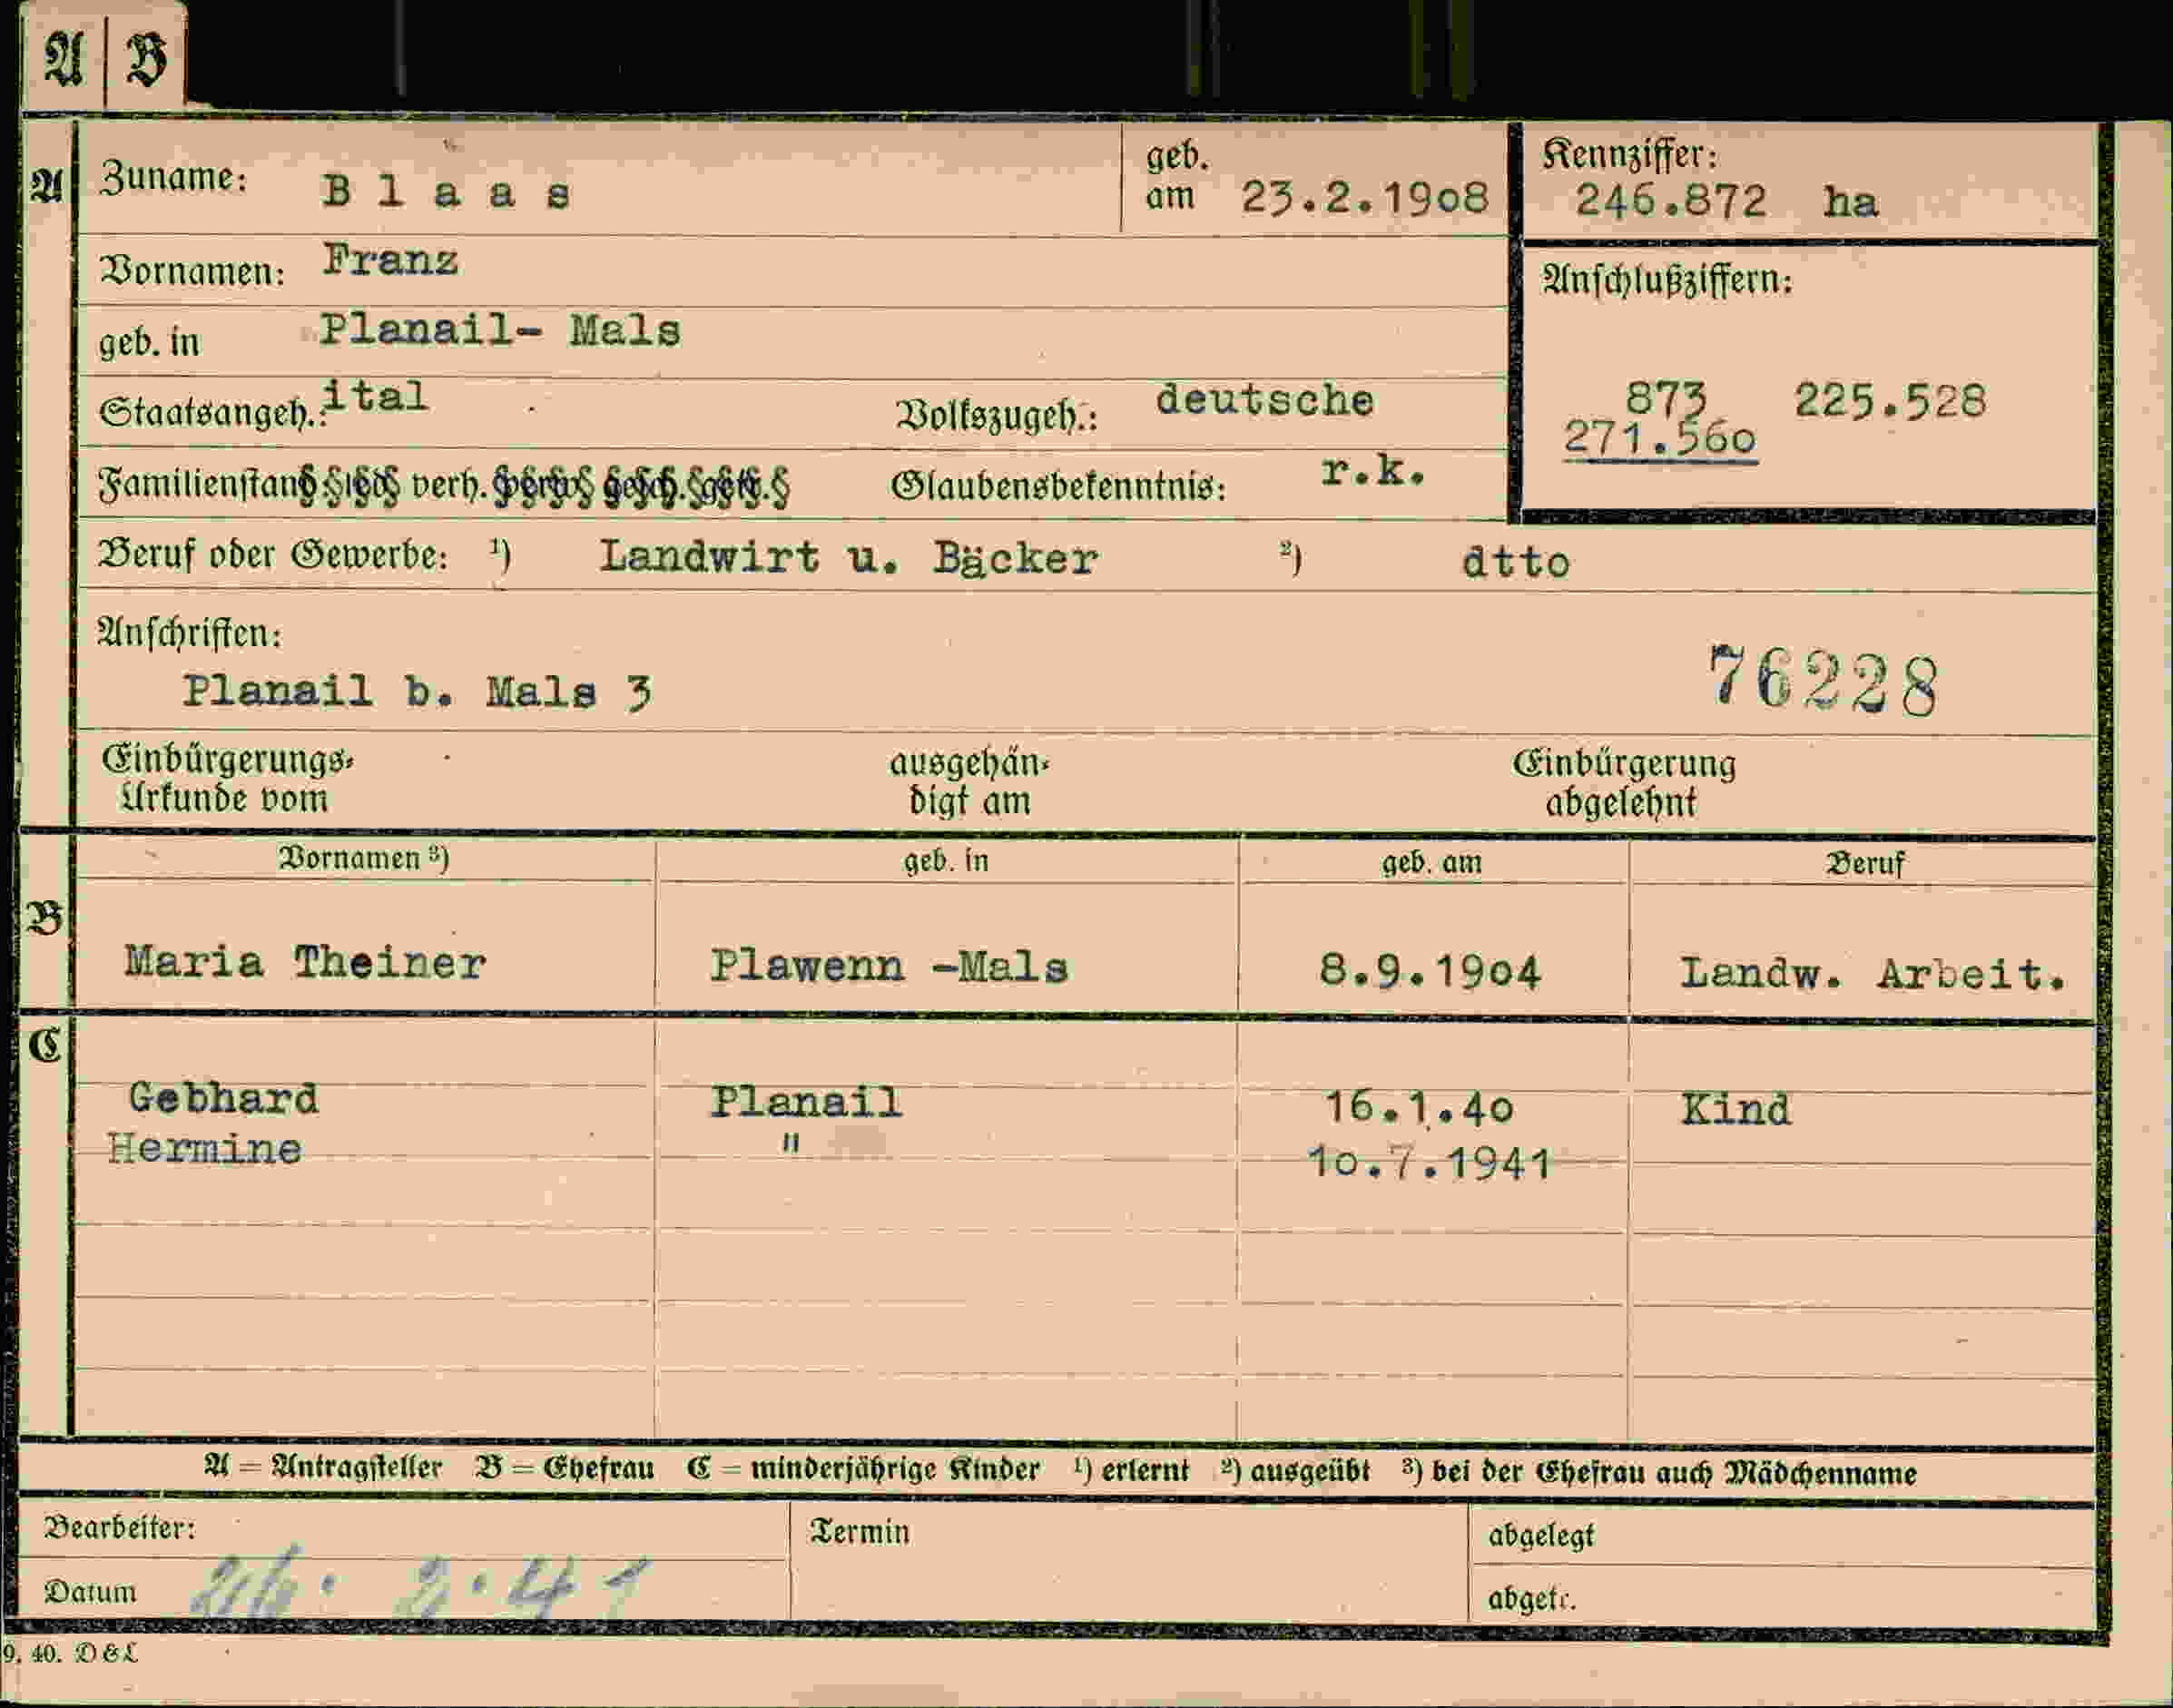 A B
A Zuname: Blaas geb. am 23.2.1908 Kennziffer: 246.872 ha
Vornamen: Franz
Anschlußziffern:
geb. in Planail- Mals
Staatsangeh.: ital Volkszugeh.: deutsche 873 225.528
271.560
Familienstand verh. Glaubensbekenntnis: r.k.
Beruf oder Gewerbe: 1) Landwirt u. Bäcker 2) dtto
Anschriften:
Planail b. Mals 3 76228
Einbürgerungs- ausgehän- Einbürgerung
Urkunde vom digt am abgelehnt
Vornamen 3) geb. in geb. am Beruf
B
Maria Theiner Plawenn -Mals 8.9.1904 Landw. Arbeit.
C
Gebhard Planail 16.1.40 Kind
Hermine " 10.7.1941
A = Antragsteller B = Ehefrau C = minderjährige Kinder 1) erlernt 2) ausgeübt 3) bei der Ehefrau auch Mädchenname
Bearbeiter: Termin abgelegt
Datum abgetr.
9. 40. D & L